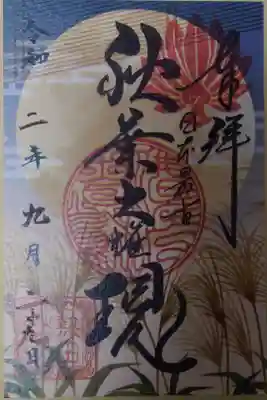 奉拝
日本最古
秋葉大権現
令和二年九月二十日